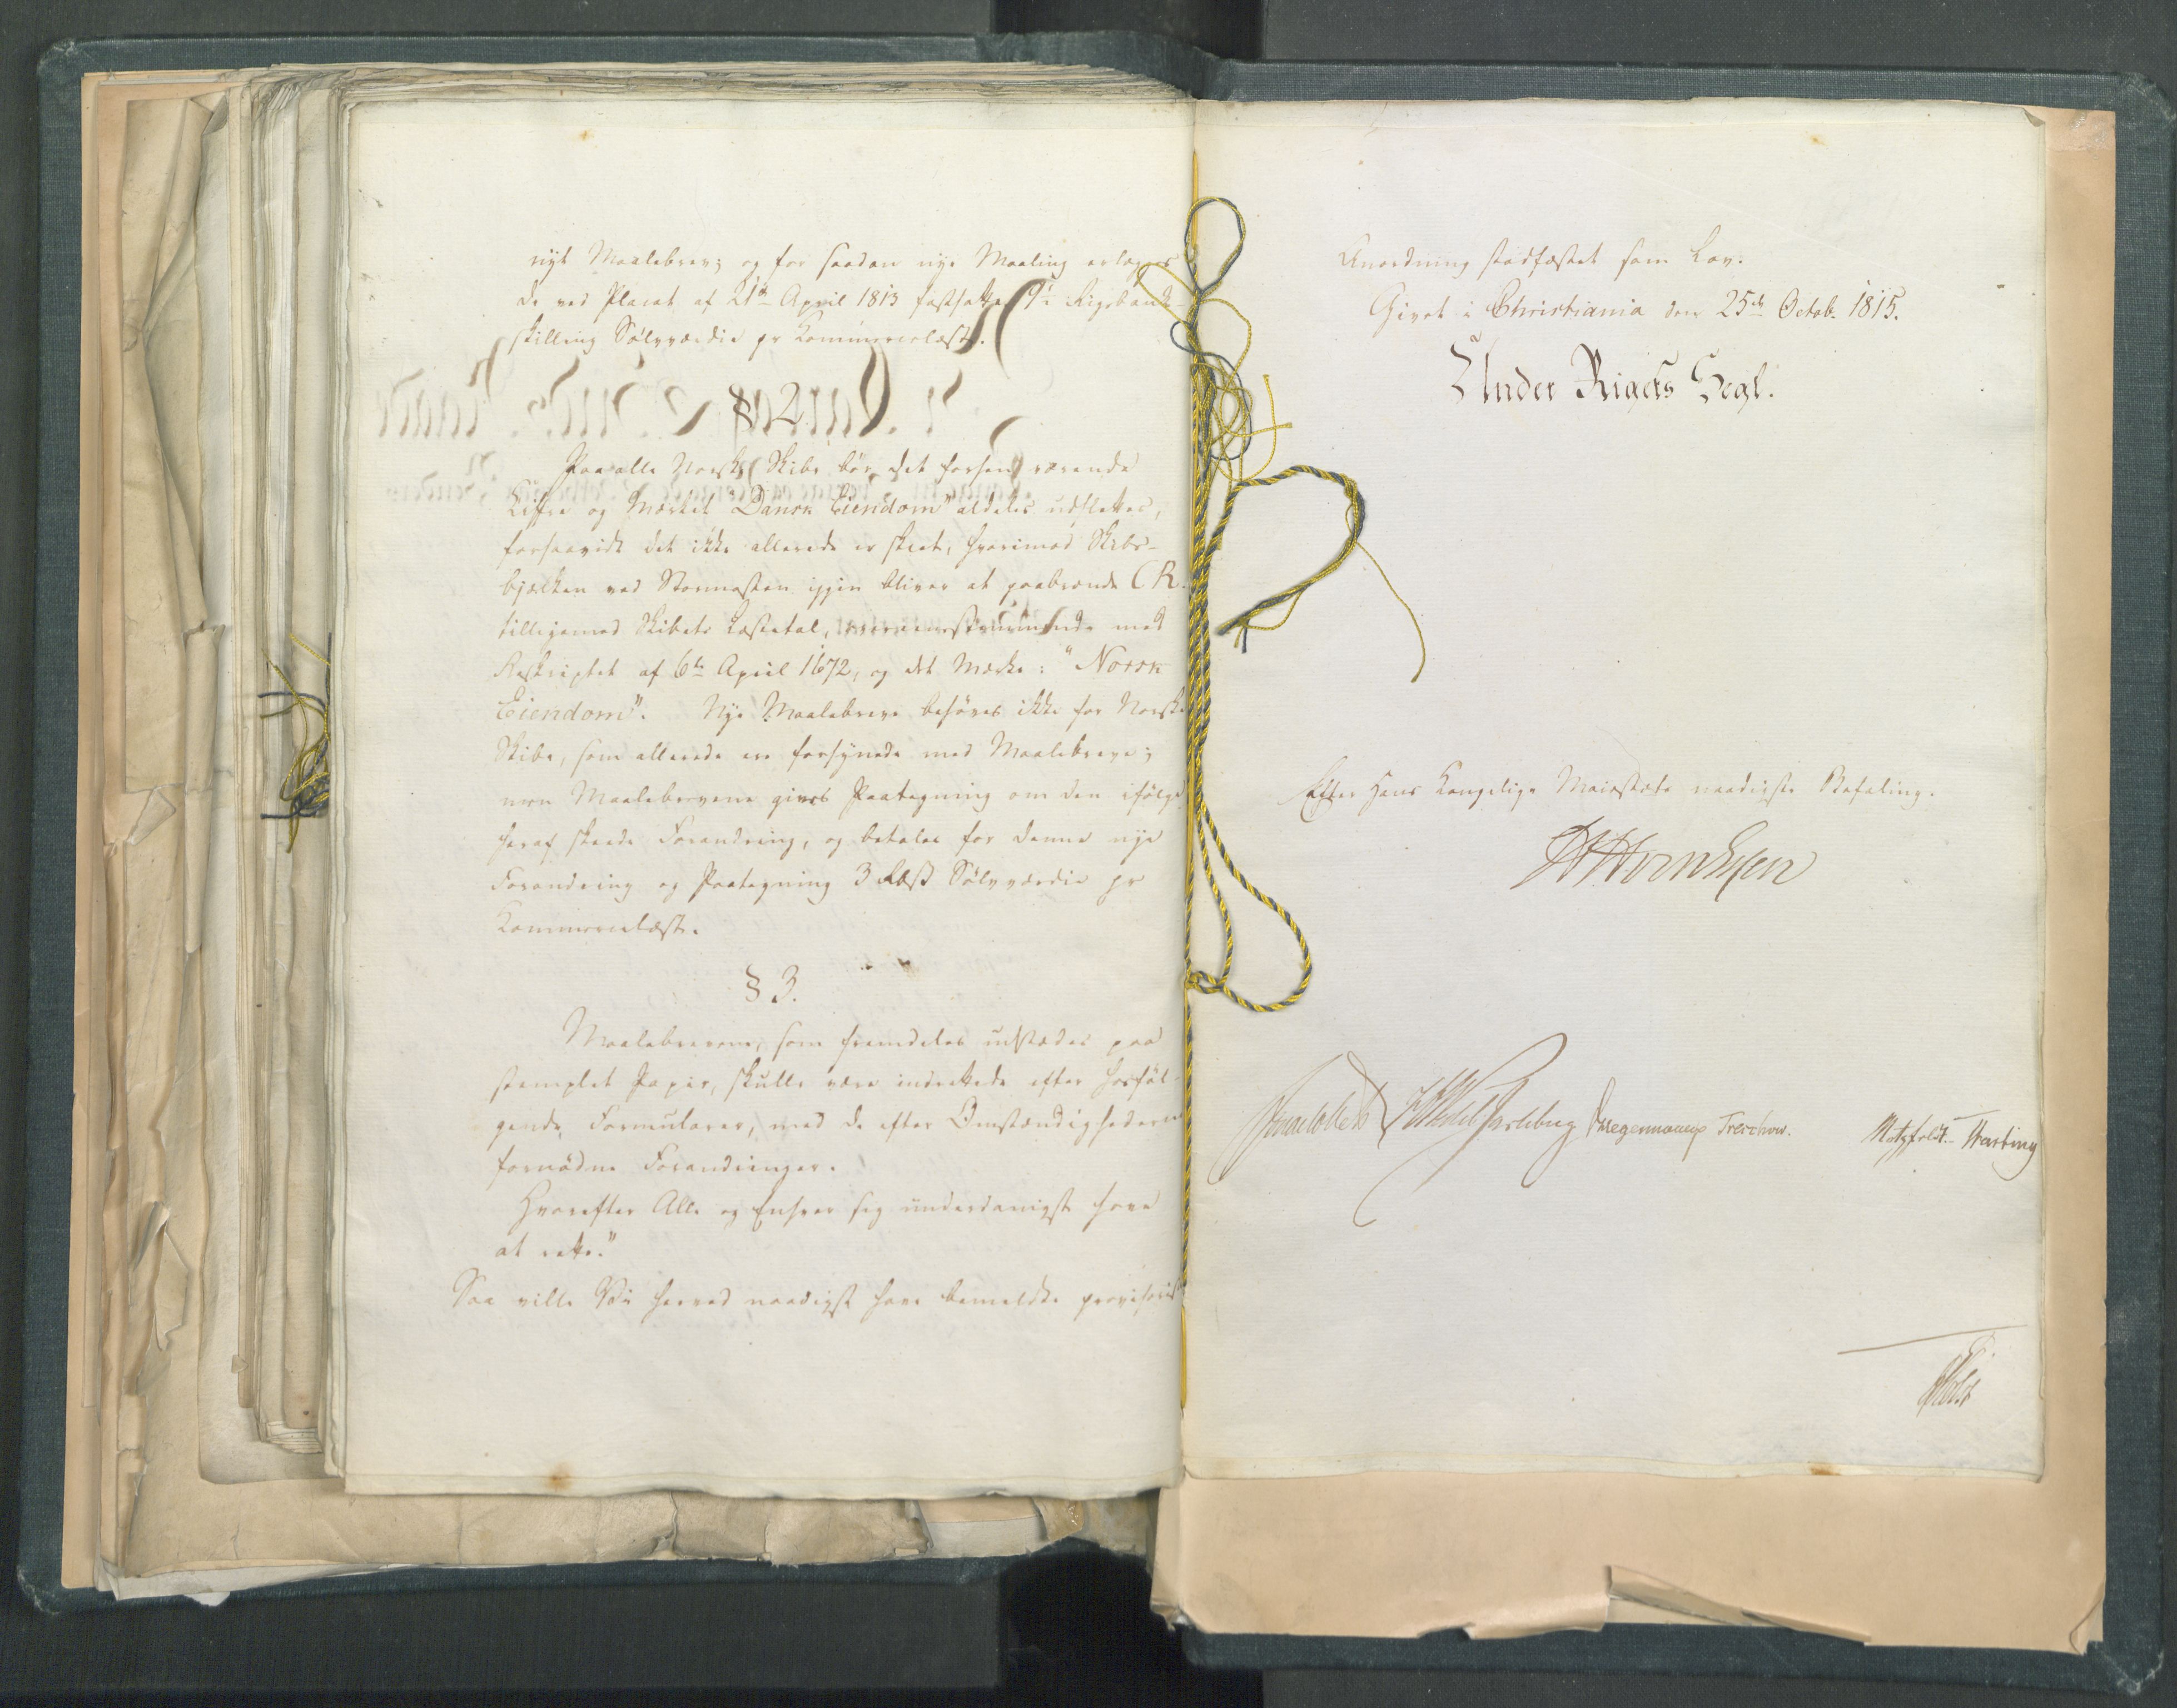 nyt Maalebrev; og for saadan nye Maaling erlægges
de ved Placat af 21de April 1813 fastsatte 9½ Rigsbank-
skilling Sølvværdie pr Kommercelæst.
§ 2.
Paa alle Norske Skibe bør det forhen værende
Ciffre og Mærket "Dansk Eiendom" aldeles udslettes,
forsaavidt det ikke allerede er skeet, hvorimod Skibs-
bjælken ved Stormasten igjen bliver at paabrænde C R.
tilligemed Skibets Læstetal, overeensstemmende med
Reskriptet af 6te April 1672, og det Mærke: "Norsk
Eiendom". Nye Maalebreve behøves ikke for Norske
Skibe, som allerede ere forsynede med Maalebreve;
men Maalebrevene gives Paategning om den ifølge
heraf skeede Forandring, og betales for denne nye
Forandring og Paategning 3 Rbsk Sølvværdie pr
Kommercelæst.
§ 3.
Maalebrevene, som fremdeles udstædes paa
stemplet Papir, skulle være indrettede efter hosføl-
gende Formularer, med de efter Omstændighederne
fornødne Forandringer.
Hvorefter Alle og Enhver sig underdanigst have
at rette."
Saa ville Vi herved naadigst have bemeldte provisoriske
Anordning stadfæstet som Lov.
Givet i Christiania den 25de Octob. 1815.
Under Rigets Segl.
Efter Hans Kongelige Maiestæts naadigste Befaling.
Sommerhielm Wedel Jarlsberg Diegermanup Treschow. Motzfeldt. Hartmg
Holst